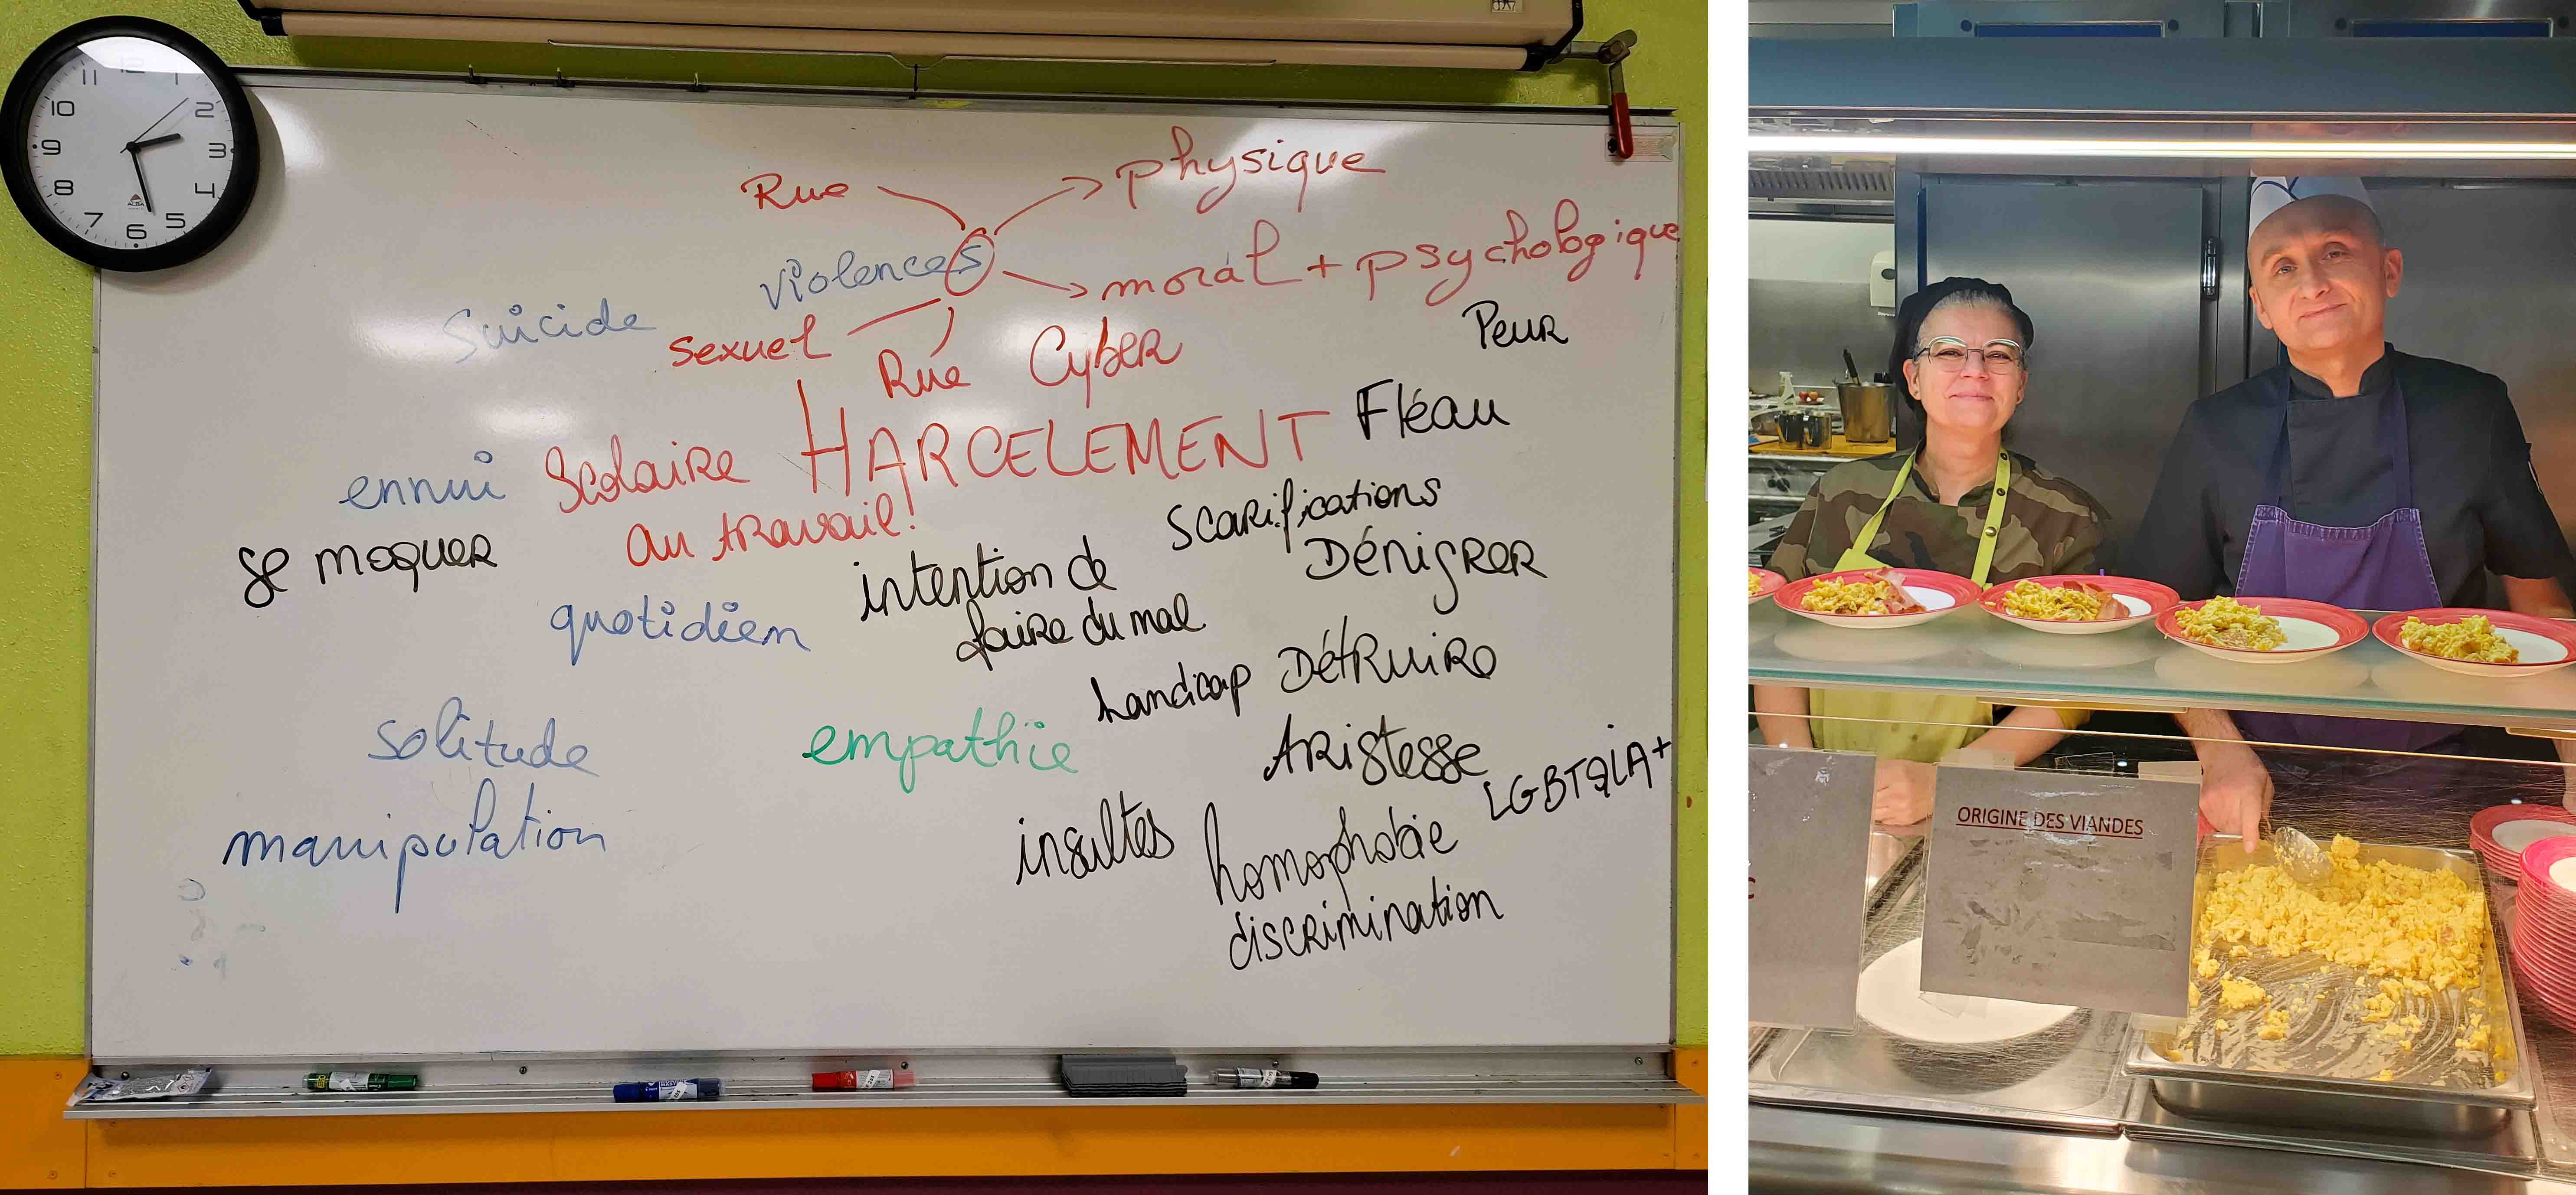 11 12 1
10 2
9 3
8 4
7 6 5
ALBA
Rue physique
violences
moral + psychologique
Suicide
sexuel
Rue Cyber Peur
Scolaire HARCELEMENT Fléau
ennui
au travail!
Scarifications
se moquer
intention de
faire du mal
Dénigrer
quotidien
handicap Détruire
solitude empathie tristesse
LGBTQIA+
manipulation
insultes homophobie
discrimination
ORIGINE DES VIANDES